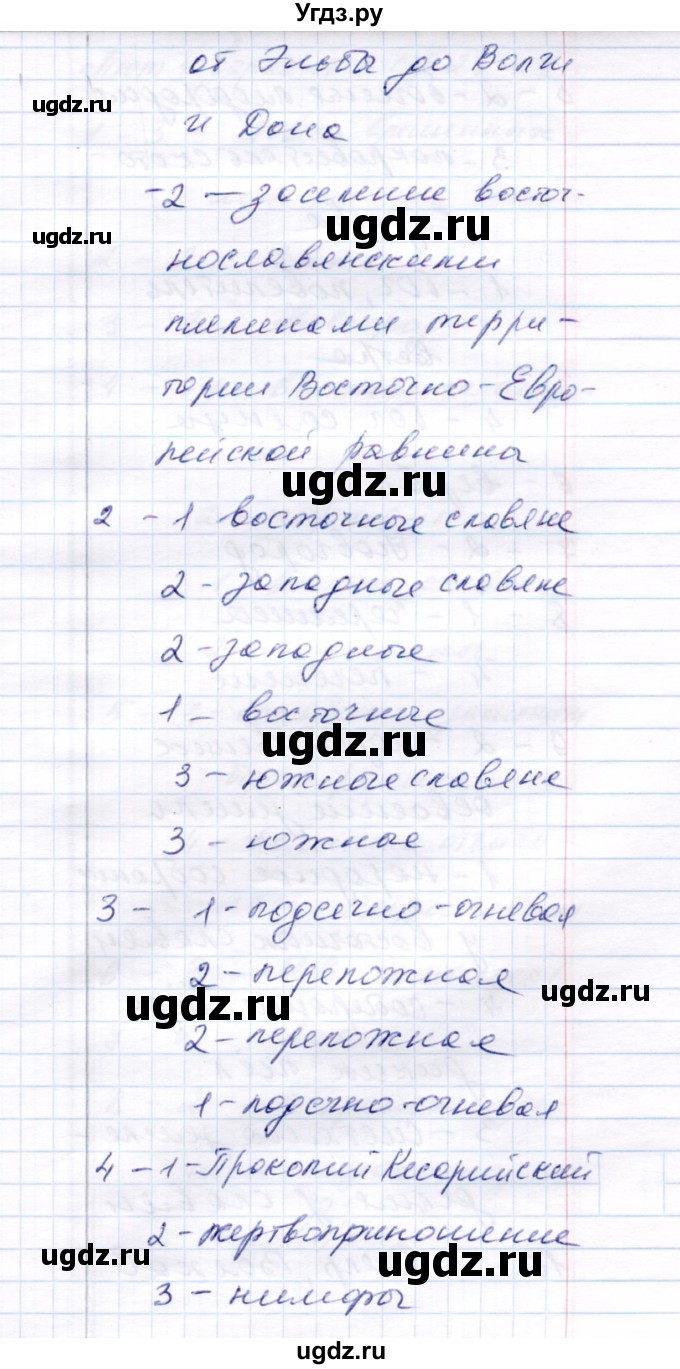 Угдз.ру
от Эльбы до Волги
ugdz.ru
и Дона
-2 - заселение восточ-
ugdz.ru
ugdz.ru
нославянскими
племенами терри-
тории Восточно-Евро-
пейской равнины
ugdz.ru
2 - 1 восточные славяне
2 - западные славяне
2 - западные
1 - восточные
ugdz.ru
3 - южные славяне
3 - южные
3 - 1 - подсечно-огневая
2 - переложная
ugdz.ru
ugdz.ru
2 - переложная
1 - подсечно-огневая
4 - 1 - Прокопий Кесарийский
2 - жертвоприношение
ugdz.ru
ugdz.ru
3 - нимфы